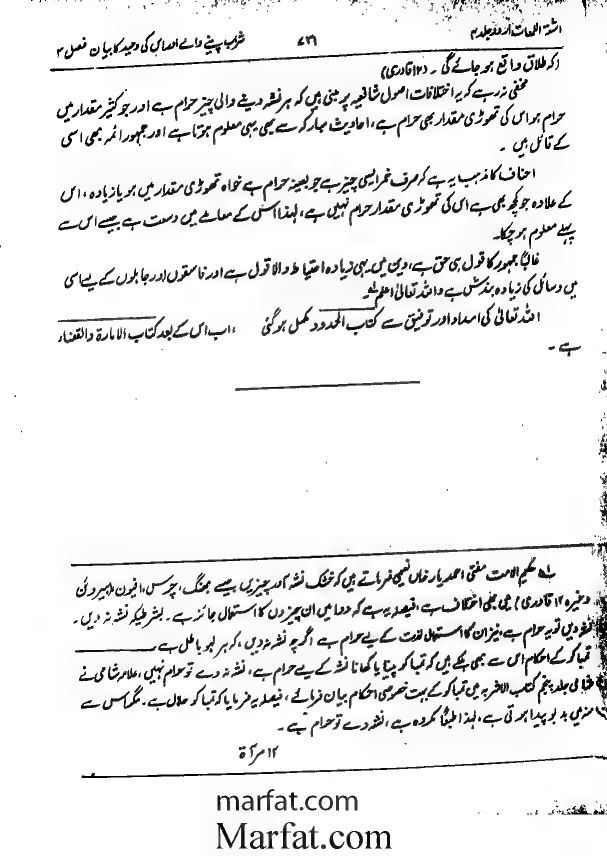 اشعۃ اللمعات اردو جلد ۴
۷۳۶
شراب پینے والے اور اس کی وعید کا بیان فصل ۳
(کہ طلاق واقع ہو جائے گی ۔ (۱۲ قادری)
مخفی نہ رہے کہ یہ اختلافات اصول شافعیہ پر مبنی ہیں کہ ہر نشہ دینے والی چیز حرام ہے اور جو کثیر مقدار میں
حرام ہو اس کی تھوڑی مقدار بھی حرام ہے، احادیث مبارکہ سے بھی یہی معلوم ہوتا ہے اور جمہور ائمہ بھی اسی
کے قائل ہیں ۔
احناف کا مذہب یہ ہے کہ صرف خمر ایسی چیز ہے جو بعینہٖ حرام ہے خواہ تھوڑی مقدار میں ہو یا زیادہ، اس
کے علاوہ جو کچھ بھی ہے اس کی تھوڑی مقدار حرام نہیں ہے، لہٰذا اس کے معاملے میں وسعت ہے جیسے اس سے
پہلے معلوم ہو چکا۔
غالباً جمہور کا قول ہی حق ہے، دین میں یہی زیادہ احتیاط والا قول ہے اور فاسقوں اور جاہلوں کے لیے اسی
میں وسائل کی زیادہ بندش ہے واللہ تعالیٰ اعلم لہ
اللہ تعالیٰ کی امداد اور توفیق سے کتاب الحدود مکمل ہو گئی ، اب اس کے بعد کتاب الامارۃ والقضاء
ہے ۔
لہ حکیم الامت مفتی احمد یار خاں نعیمی فرماتے ہیں کہ خشک نشہ آور چیزیں جیسے بھنگ، چرس، افیون (ہیروئن
وغیرہ ۱۲ قادری) میں بھی اختلاف ہے، فیصلہ یہ ہے کہ دوا میں ان چیزوں کا استعمال جائز ہے ۔ بشرطیکہ نشہ نہ دیں ۔
نشہ دیں تو یہ حرام ہے، نیز ان کا استعمال لذت کے لیے حرام ہے اگرچہ نشہ نہ دیں، کہ ہر لہو باطل ہے
تمباکو کے احکام اس سے بھی ہلکے ہیں کہ تمباکو پینا یا کھانا نشہ کے لیے حرام ہے، نشہ نہ دے تو حرام نہیں، علامہ شامی نے
شامی جلد پنجم کتاب الاشربہ میں تمباکو کے بہت خصوصی احکام بیان فرمائے، فیصلہ یہ فرمایا کہ تمباکو حلال ہے ۔ مگر اس سے
منہ میں بدبو پیدا ہوتی ہے، لہٰذا طبعًا مکروہ ہے، نشہ دے تو حرام ہے ۔
۱۲ مرآۃ
marfat.com
Marfat.com